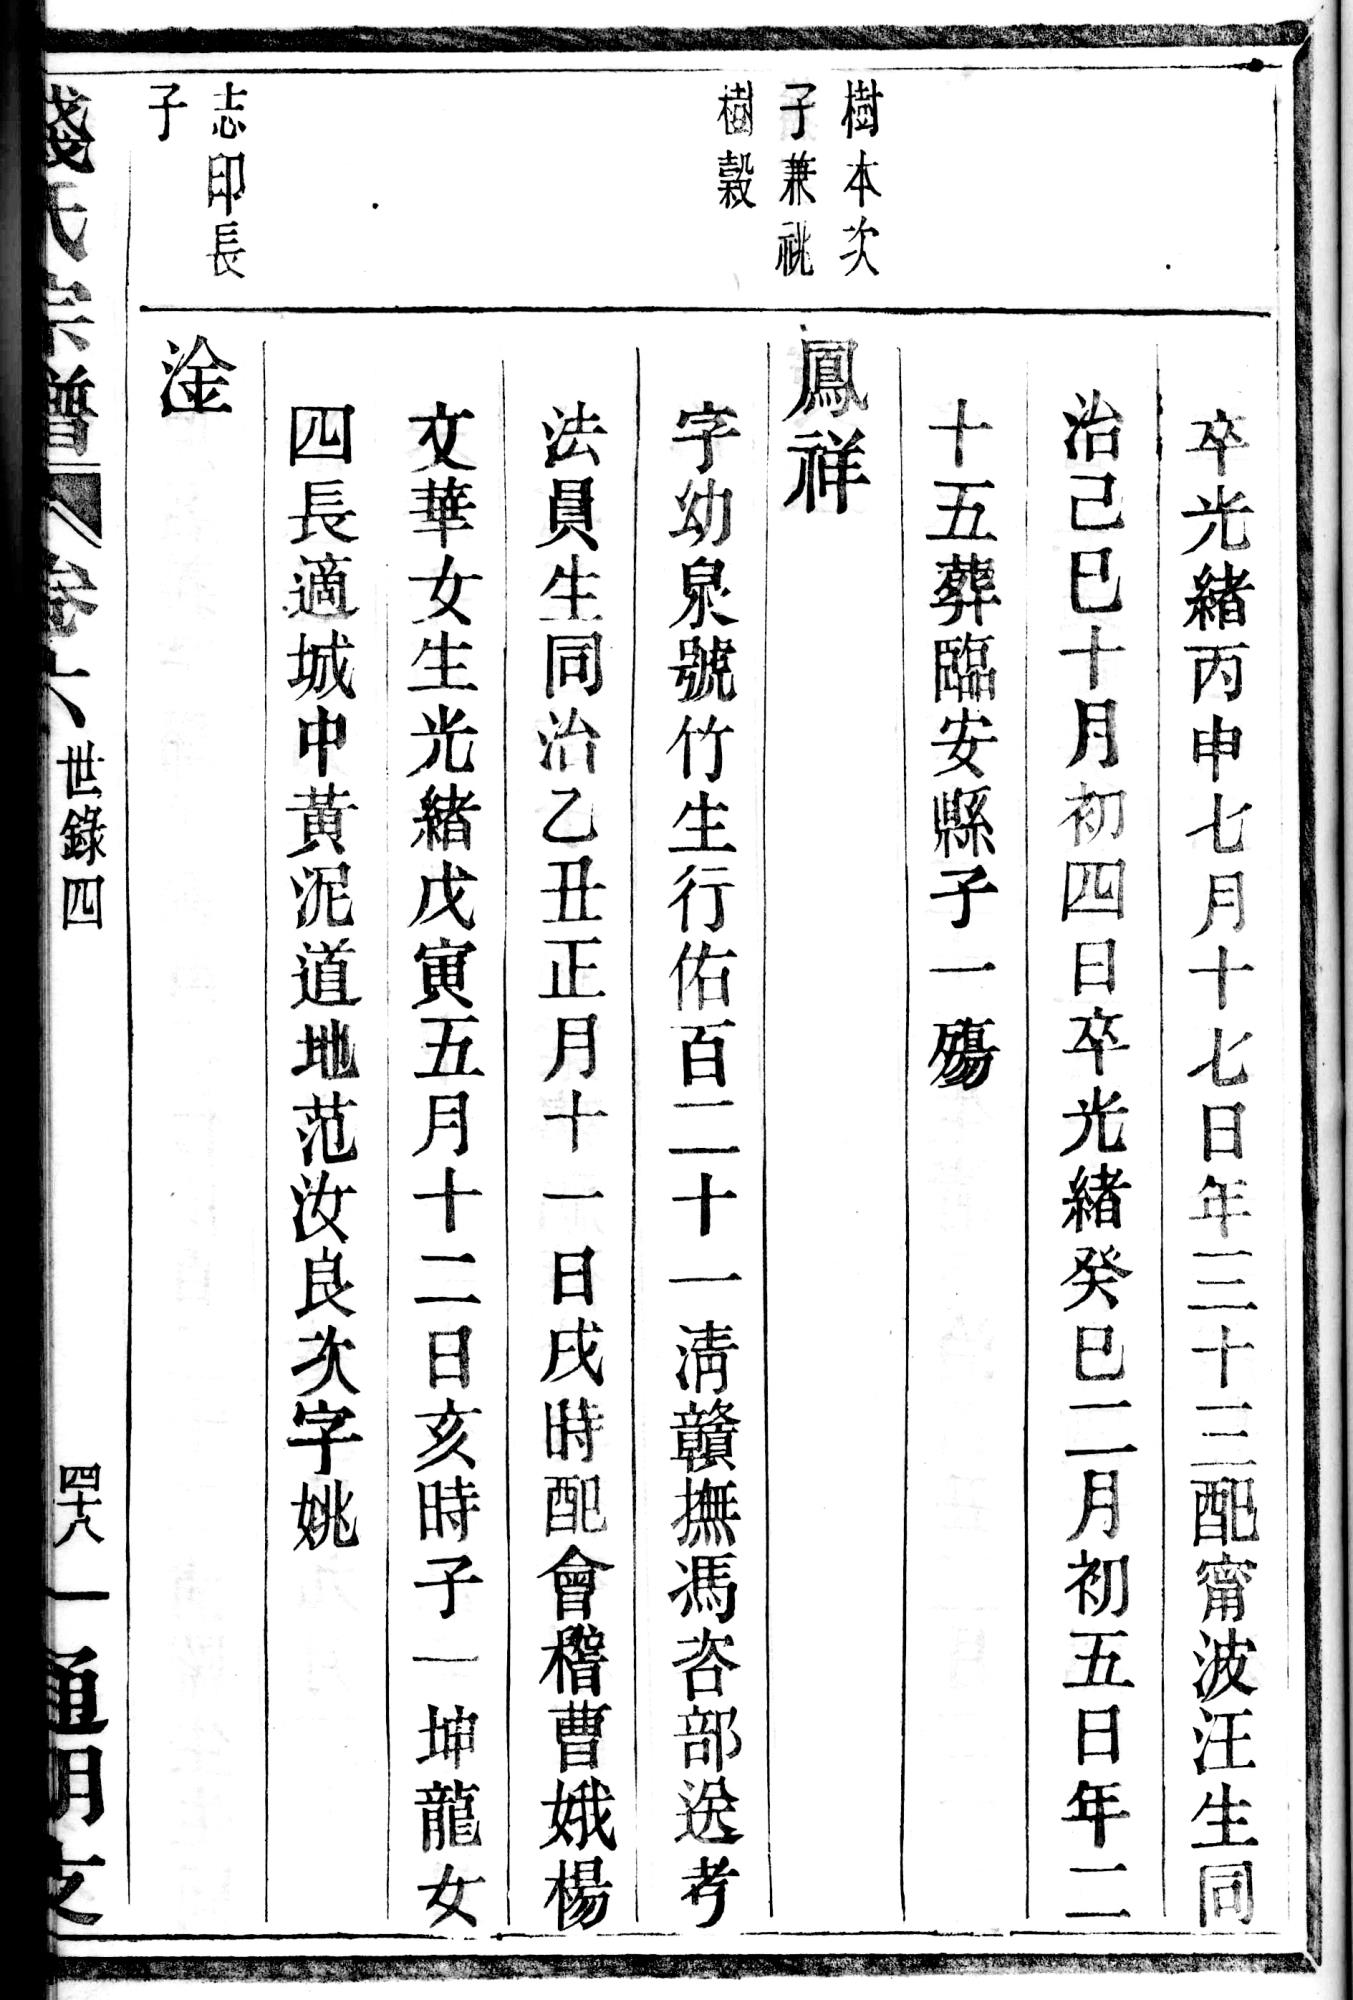 卒光緒丙申七月十七日年三十三配甯波汪生同
治己巳十月初四日卒光緒癸巳二月初五日年二
十五葬臨安縣子一殤
樹本次
子兼祧
樹穀
鳳祥
字幼泉號竹生行佑百二十一清贛撫馮咨部送考
法員生同治乙丑正月十一日戌時配會稽曹娥楊
文華女生光緒戊寅五月十二日亥時子一坤龍女
四長適城中黃泥道地范汝良次字姚
志印長
子
淦
錢氏宗譜 卷十八 世錄四 四十八 通明支